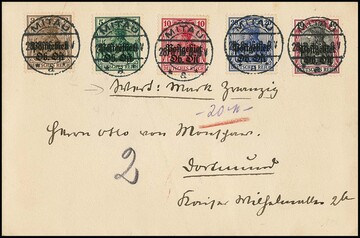 MITAU MITAU MITAU MITAU MITAU
Postgebiet Postgebiet Postgebiet Postgebiet Postgebiet
Ob. Ost Ob. Ost Ob. Ost Ob. Ost Ob. Ost
a a a a a
Wert: Mark Zwanzig
-20 M-
Herrn Otto von
2
Dortmund
Kaiser Wilhelmallee